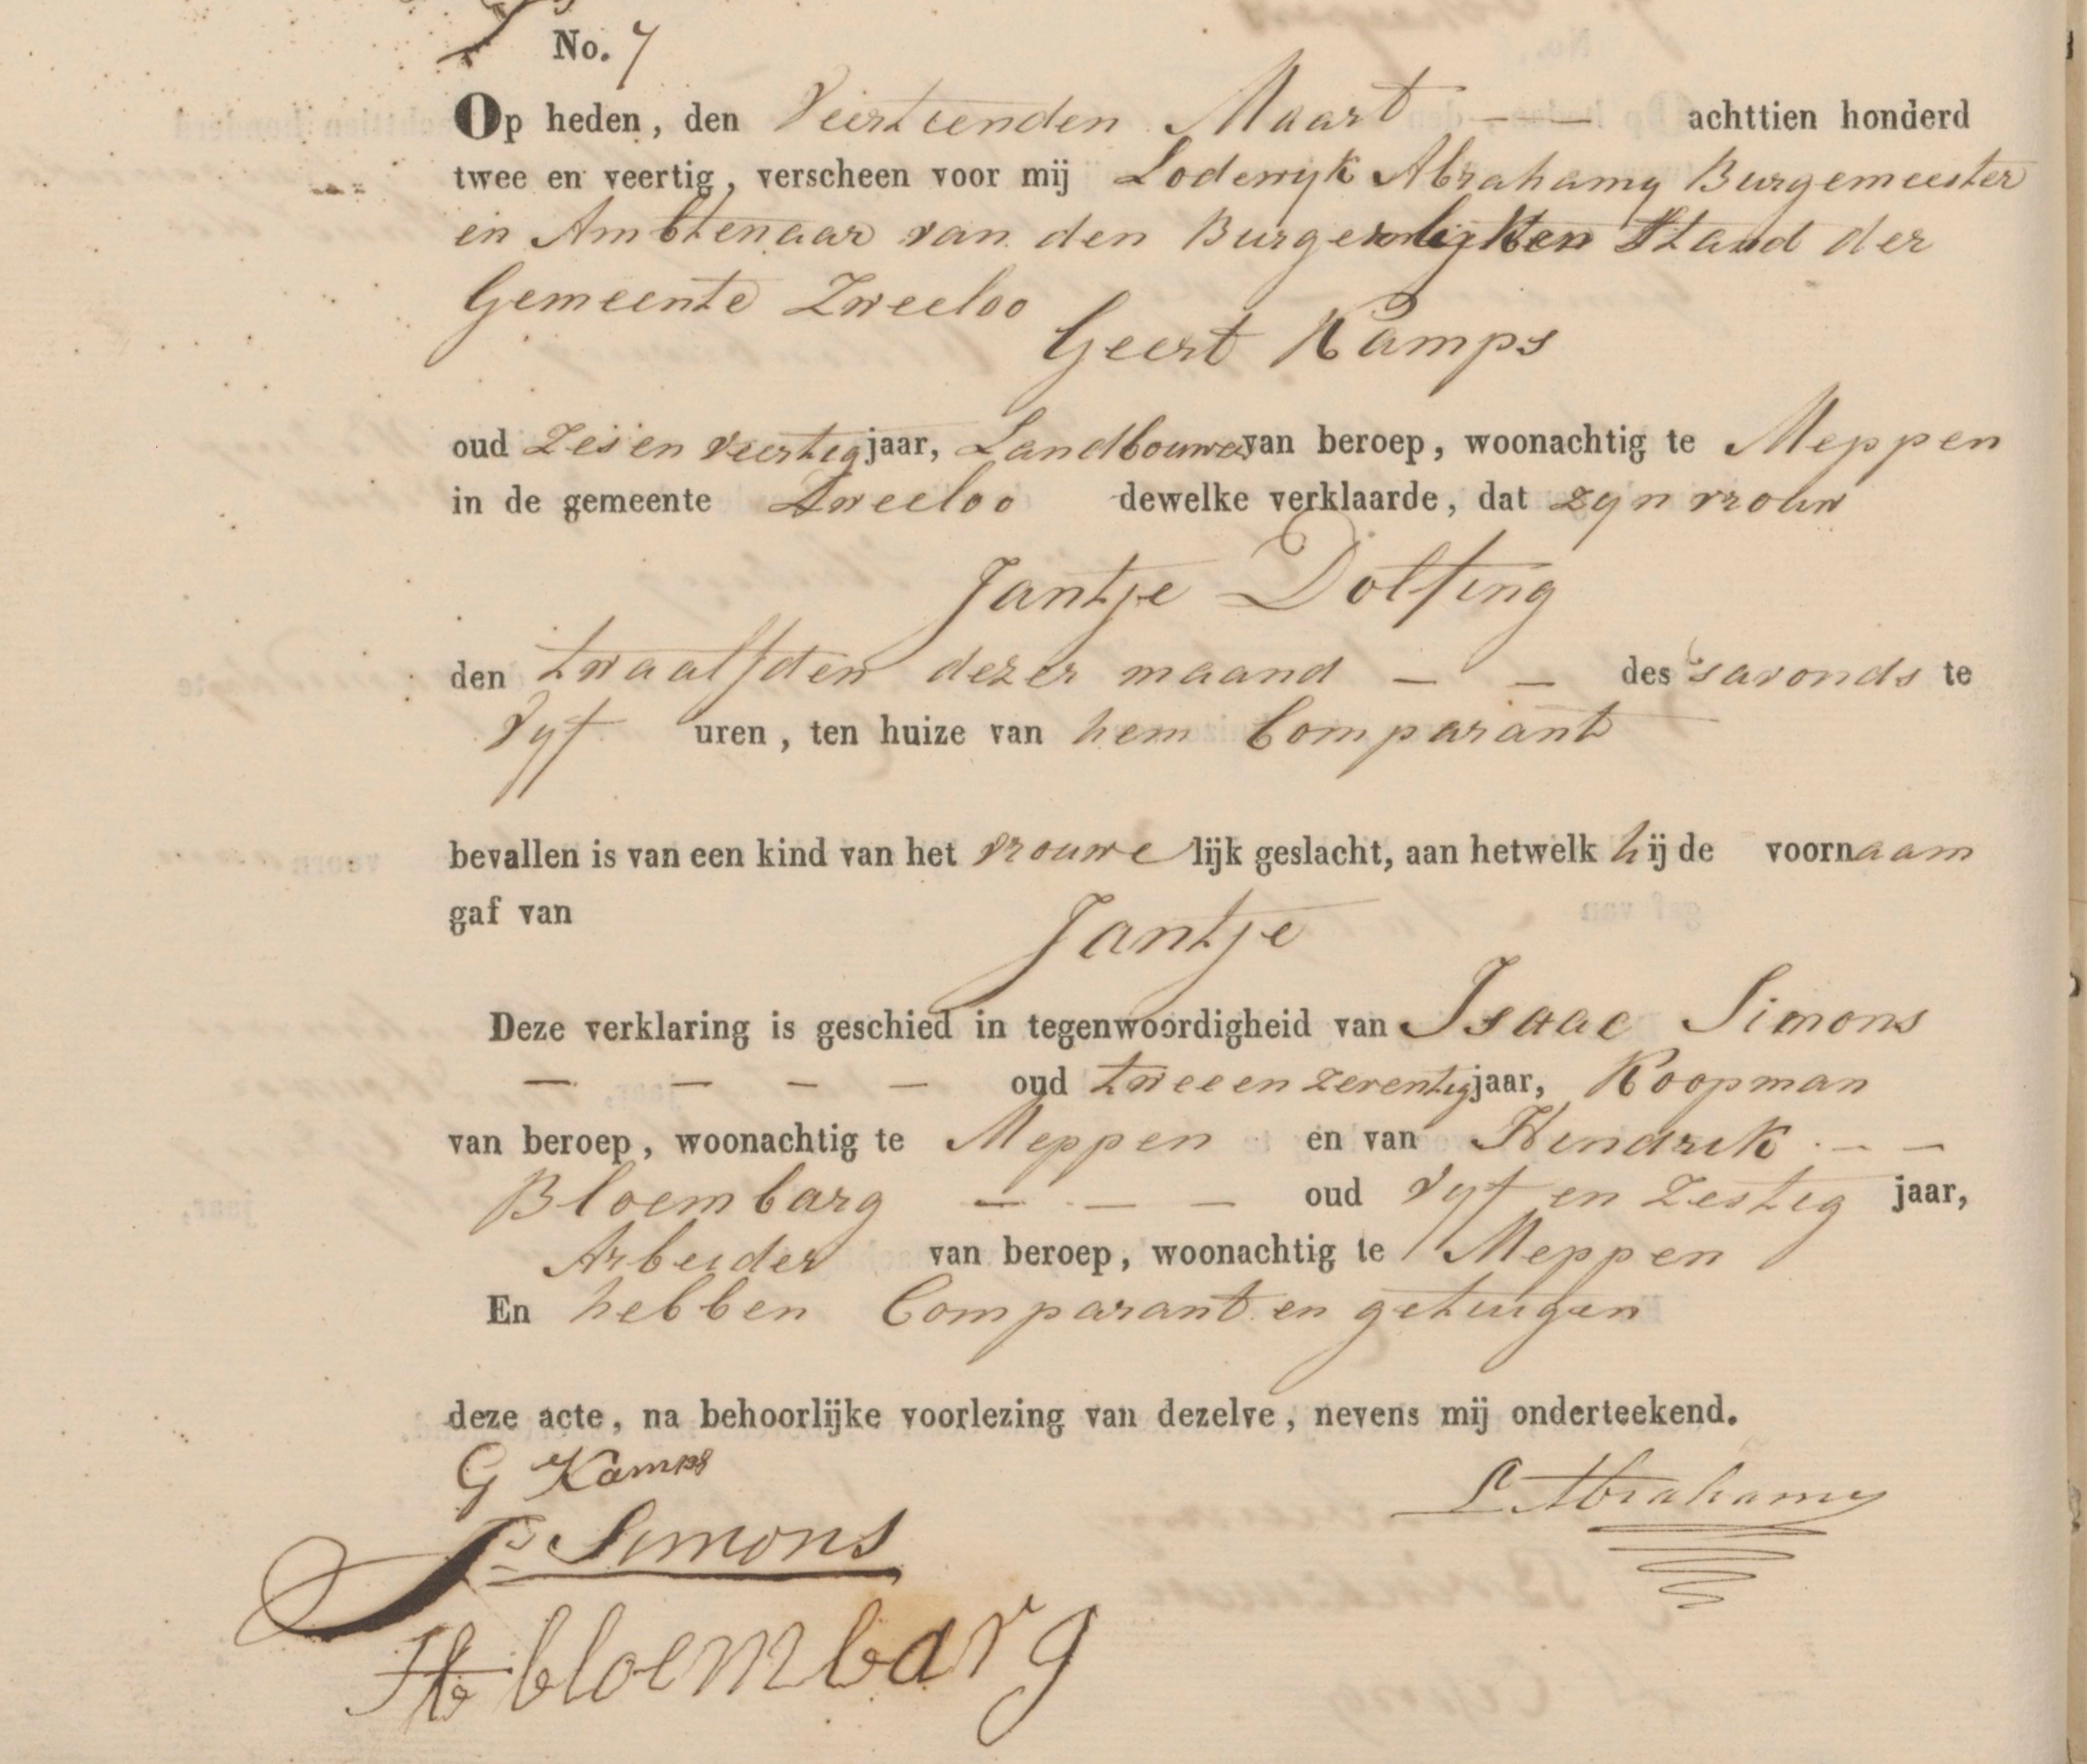 No. 7
Op heden, den Veertienden Maart — — achttien honderd
twee en veertig, verscheen voor mij Lodewyk Abrahamy Burgemeester
en Ambtenaar van den Burgerlyken Stand der
Gemeente Zweeloo
Geert Kamps
oud Zes en Veertig jaar, Landbouwer van beroep, woonachtig te Meppen
in de gemeente Zweeloo dewelke verklaarde, dat zyn vrouw
Jantje Dolfing
den twaalfden dezer maand — — des 's avonds te
Vyf uren, ten huize van hem Comparant
bevallen is van een kind van het vrouwelijk geslacht, aan hetwelk hij de voornaam
gaf van
Jantje
Deze verklaring is geschied in tegenwoordigheid van Isaac Simons
— — — — oud twee en zeventig jaar, Koopman
van beroep, woonachtig te Meppen en van Hendrik — —
Bloembarg — — — oud Vyf en Zestig jaar,
Arbeider van beroep, woonachtig te Meppen
En hebben Comparant en getuigen
deze acte, na behoorlijke voorlezing van dezelve, nevens mij onderteekend.
G Kamps
L Abrahamy
Is Simons
H bloembarg